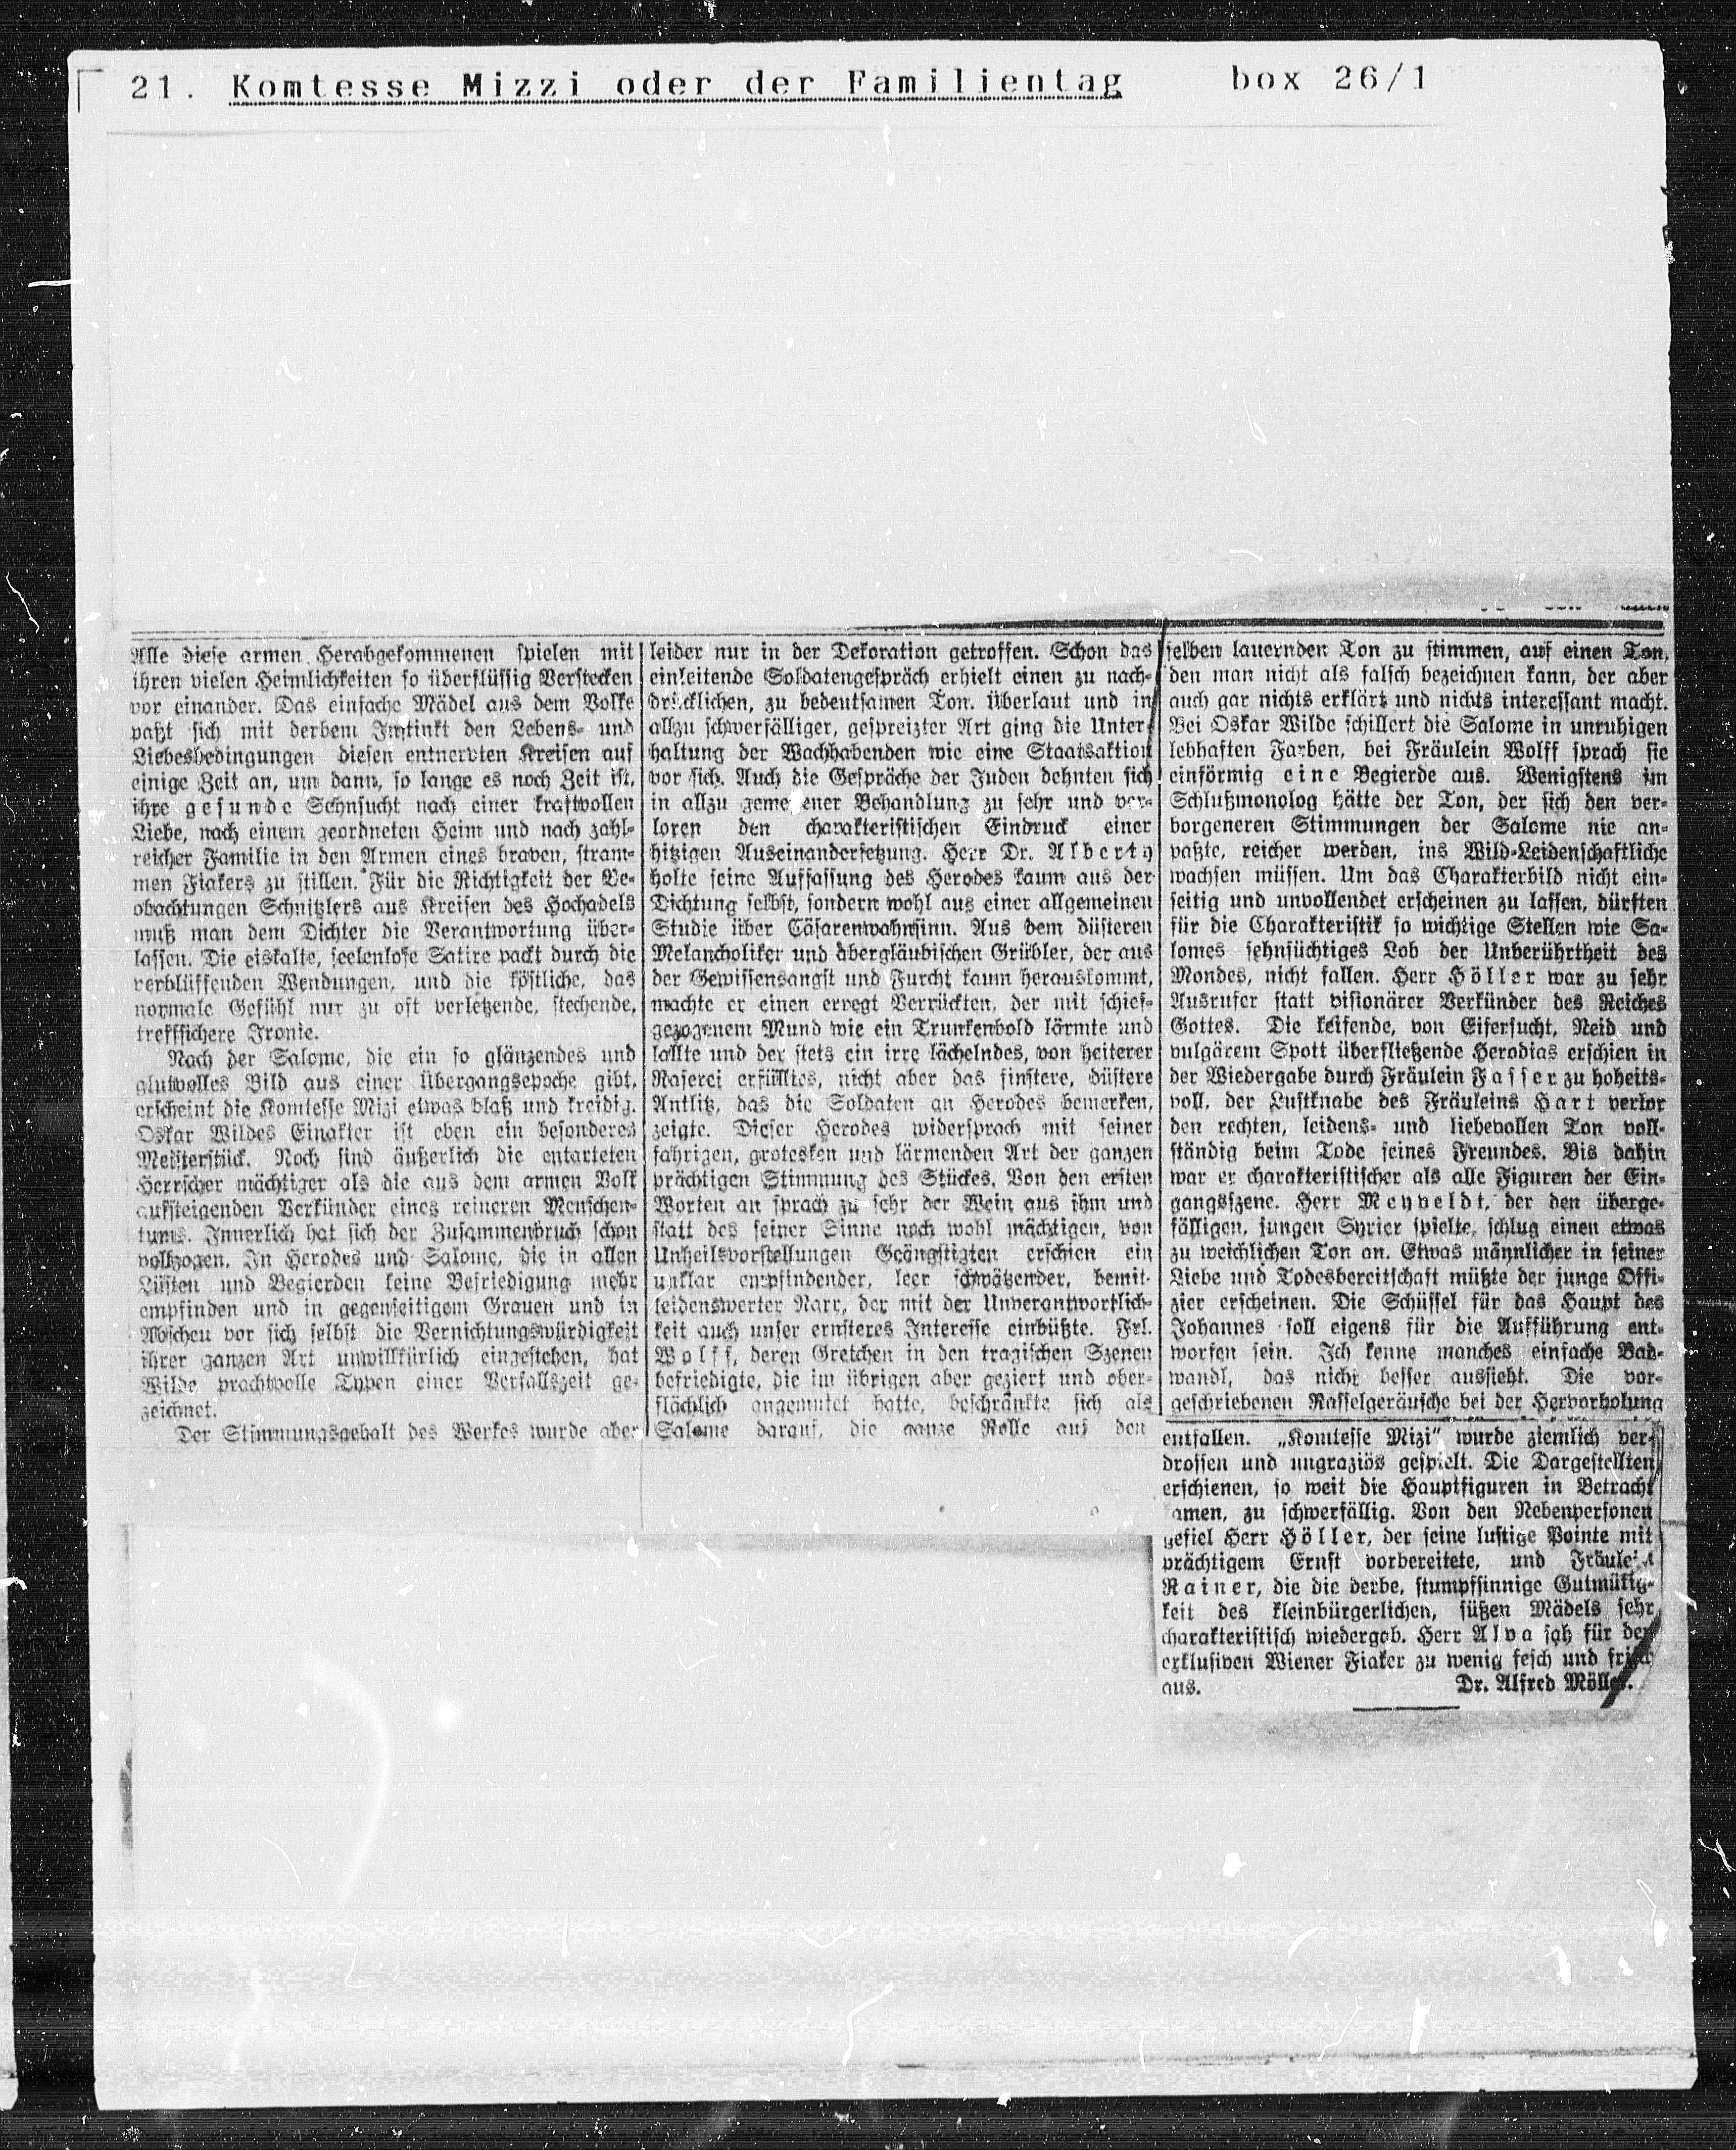 21. Komtesse Mizzi oder der Familientag box 26/1
Alle diese armen Herabgekommenen spielen mit
ihren vielen Heimlichkeiten so überflüssig Verstecken
vor einander. Das einfache Mädel aus dem Volke
paßt sich mit derbem Instinkt den Lebens- und
Liebesbedingungen diesen entnervten Kreisen auf
einige Zeit an, um dann, so lange es noch Zeit ist,
ihre gesunde Sehnsucht nach einer kraftvollen
Liebe, nach einem geordneten Heim und nach zahl-
reicher Familie in den Armen eines braven, stram-
men Fiakers zu stillen. Für die Richtigkeit der Be-
obachtungen Schnitzlers aus Kreisen des Hochadels
muß man dem Dichter die Verantwortung über-
lassen. Die eiskalte, seelenlose Satire packt durch die
verblüffenden Wendungen, und die köstliche, das
normale Gefühl nur zu oft verletzende, stechende,
treffsichere Ironie.
Nach der Salome, die ein so glänzendes und
glutvolles Bild aus einer Übergangsepoche gibt,
erscheint die Komtesse Mizi etwas blaß und kreidig.
Oskar Wildes Einakter ist eben ein besonderes
Meisterstück. Noch sind äußerlich die entarteten
Herrscher mächtiger als die aus dem armen Volk
aufsteigenden Verkünder eines reineren Menschen-
tums. Innerlich hat sich der Zusammenbruch schon
vollzogen. In Herodes und Salome, die in allen
Lüsten und Begierden keine Befriedigung mehr
empfinden und in gegenseitigem Grauen und in
Abscheu vor sich selbst die Vernichtungswürdigkeit
ihrer ganzen Art unwillkürlich eingestehen, hat
Wilde prachtvolle Typen einer Verfallszeit ge-
zeichnet.
Der Stimmungsgehalt des Werkes wurde aber
leider nur in der Dekoration getroffen. Schon das
einleitende Soldatengespräch erhielt einen zu nach-
drücklichen, zu bedeutsamen Ton. Überlaut und in
allzu schwerfälliger, gespreizter Art ging die Unter-
haltung der Wachhabenden wie eine Staatsaktion
vor sich. Auch die Gespräche der Juden dehnten sich
in allzu gemessener Behandlung zu sehr und ver-
loren den charakteristischen Eindruck einer
hitzigen Auseinandersetzung. Herr Dr. Alberty
holte seine Auffassung des Herodes kaum aus der
Dichtung selbst, sondern wohl aus einer allgemeinen
Studie über Cäsarenwahnsinn. Aus dem düsteren
Melancholiker und abergläubischen Grübler, der aus
der Gewissensangst und Furcht kaum herauskommt,
machte er einen erregt Verrückten, der mit schief-
gezogenem Mund wie ein Trunkenbold lärmte und
lallte und der stets ein irre lächelndes, von heiterer
Raserei erfülltes, nicht aber das finstere, düstere
Antlitz, das die Soldaten an Herodes bemerken,
zeigte. Dieser Herodes widersprach mit seiner
fahrigen, grotesken und lärmenden Art der ganzen
prächtigen Stimmung des Stückes. Von den ersten
Worten an sprach zu sehr der Wein aus ihm und
statt des seiner Sinne noch wohl mächtigen, von
Unheilsvorstellungen Geängstigten erschien ein
unklar empfindender, leer schwätzender, bemit-
leidenswerter Narr, der mit der Unverantwortlich-
keit auch unser ernsteres Interesse einbüßte. Frl.
Wolff, deren Gretchen in den tragischen Szenen
befriedigte, die im übrigen aber geziert und ober-
flächlich angemutet hatte, beschränkte sich als
Salome darauf, die ganze Rolle auf den
selben lauernden Ton zu stimmen, auf einen Ton,
den man nicht als falsch bezeichnen kann, der aber
auch gar nichts erklärt und nichts interessant macht.
Bei Oskar Wilde schillert die Salome in unruhigen
lebhaften Farben, bei Fräulein Wolff sprach sie
einförmig eine Begierde aus. Wenigstens im
Schlußmonolog hätte der Ton, der sich den ver-
borgeneren Stimmungen der Salome nie an-
paßte, reicher werden, ins Wild-Leidenschaftliche
wachsen müssen. Um das Charakterbild nicht ein-
seitig und unvollendet erscheinen zu lassen, dürften
für die Charakteristik so wichtige Stellen wie Sa-
lomes sehnsüchtiges Lob der Unberührtheit des
Mondes, nicht fallen. Herr Höller war zu sehr
Ausrufer statt visionärer Verkünder des Reiches
Gottes. Die keifende, von Eifersucht, Neid und
vulgärem Spott überfließende Herodias erschien in
der Wiedergabe durch Fräulein Fasser zu hoheits-
voll, der Lustknabe des Fräuleins Hart verlor
den rechten, leidens- und liebevollen Ton voll-
ständig beim Tode seines Freundes. Bis dahin
war er charakteristischer als alle Figuren der Ein-
gangsszene. Herr Meyveldt, der den überge-
fälligen, jungen Syrier spielte, schlug einen etwas
zu weichlichen Ton an. Etwas männlicher in seiner
Liebe und Todesbereitschaft müßte der junge Offi-
zier erscheinen. Die Schüssel für das Haupt des
Johannes soll eigens für die Aufführung ent-
worfen sein. Ich kenne manches einfache Bad-
wandl, das nicht besser aussieht. Die vor-
geschriebenen Rasselgeräusche bei der Hervorholung
entfallen. „Komtesse Mizi" wurde ziemlich ver-
drossen und ungraziös gespielt. Die Dargestellten
erschienen, so weit die Hauptfiguren in Betracht
amen, zu schwerfällig. Von den Nebenpersonen
gefiel Herr Höller, der seine lustige Pointe mit
prächtigem Ernst vorbereitete, und Fräulein
Rainer, die die derbe, stumpfsinnige Gutmütig-
keit des kleinbürgerlichen, süßen Mädels sehr
charakteristisch wiedergab. Herr Alva sah für den
exklusiven Wiener Fiaker zu wenig fesch und frisch
aus. Dr. Alfred Möller.